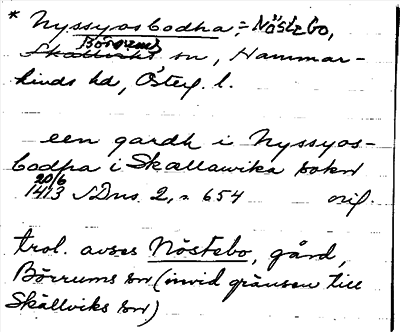 * Nyssyosbodha = Nöstebo,
Börrums
Skällviks sn, Hammar-
kinds hd, Österg. l.
een gardh i Nyssyos-
bodha i Skællawika sokn
20/6
1413 SDns. 2, s. 654 orig.
trol. avses Nöstebo, gård,
Börrums sn (invid gränsen till
Skällviks sn)